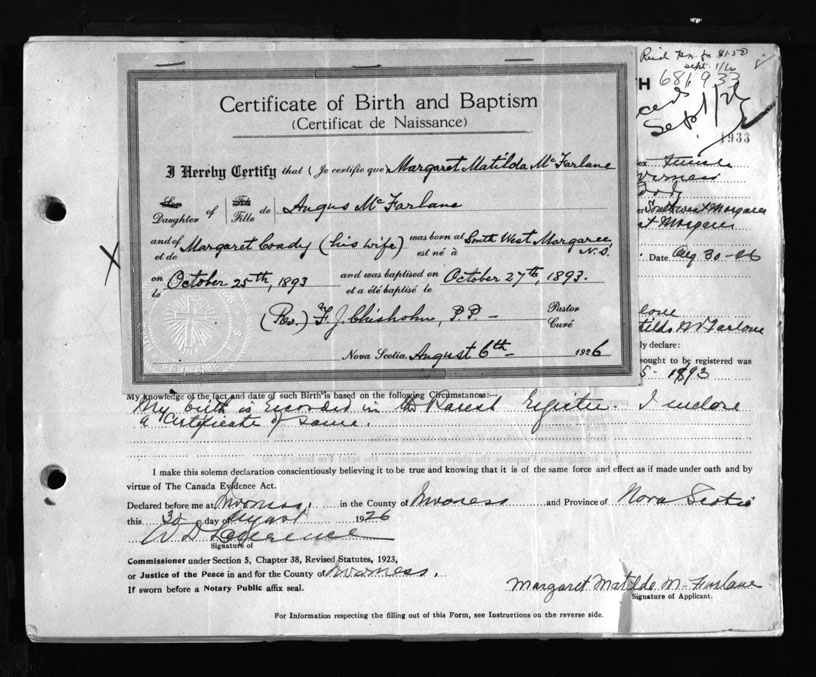 681933
Sept 1/26
1933
Certificate of Birth and Baptism
(Certificat de Naissance)
I Hereby Certify that (Je certifie que) Margaret Matilda McFarlane
Son Fils
Daughter of Fille de Angus McFarlane
and of
et de Margaret Coady (his wife) was born at
est né à South West Margaree, N.S.
on
le October 25th, 1893 and was baptised on
et a été baptisé le October 27th, 1893.
F. J. Chisholm, P.P. - Pastor
Curé
Nova Scotia August 6th- 1926
Date Aug 30-26
ly declare:
ought to be registered was
1893
My knowledge of the fact and date of such Birth is based on the following Circumstances:-
My birth is recorded in the Parish Register. I inclose
a Certificate of same.
I make this solemn declaration conscientiously believing it to be true and knowing that it is of the same force and effect as if made under oath and by
virtue of The Canada Evidence Act.
Declared before me at Inverness, in the County of Inverness and Province of Nova Scotia
this 30 day of August 1926
Signature of
Commissioner under Section 5, Chapter 38, Revised Statutes, 1923,
or Justice of the Peace in and for the County of Inverness.
If sworn before a Notary Public affix seal.
Margaret Matilda McFarlane
Signature of Applicant.
For Information respecting the filling out of this Form, see Instructions on the reverse side.